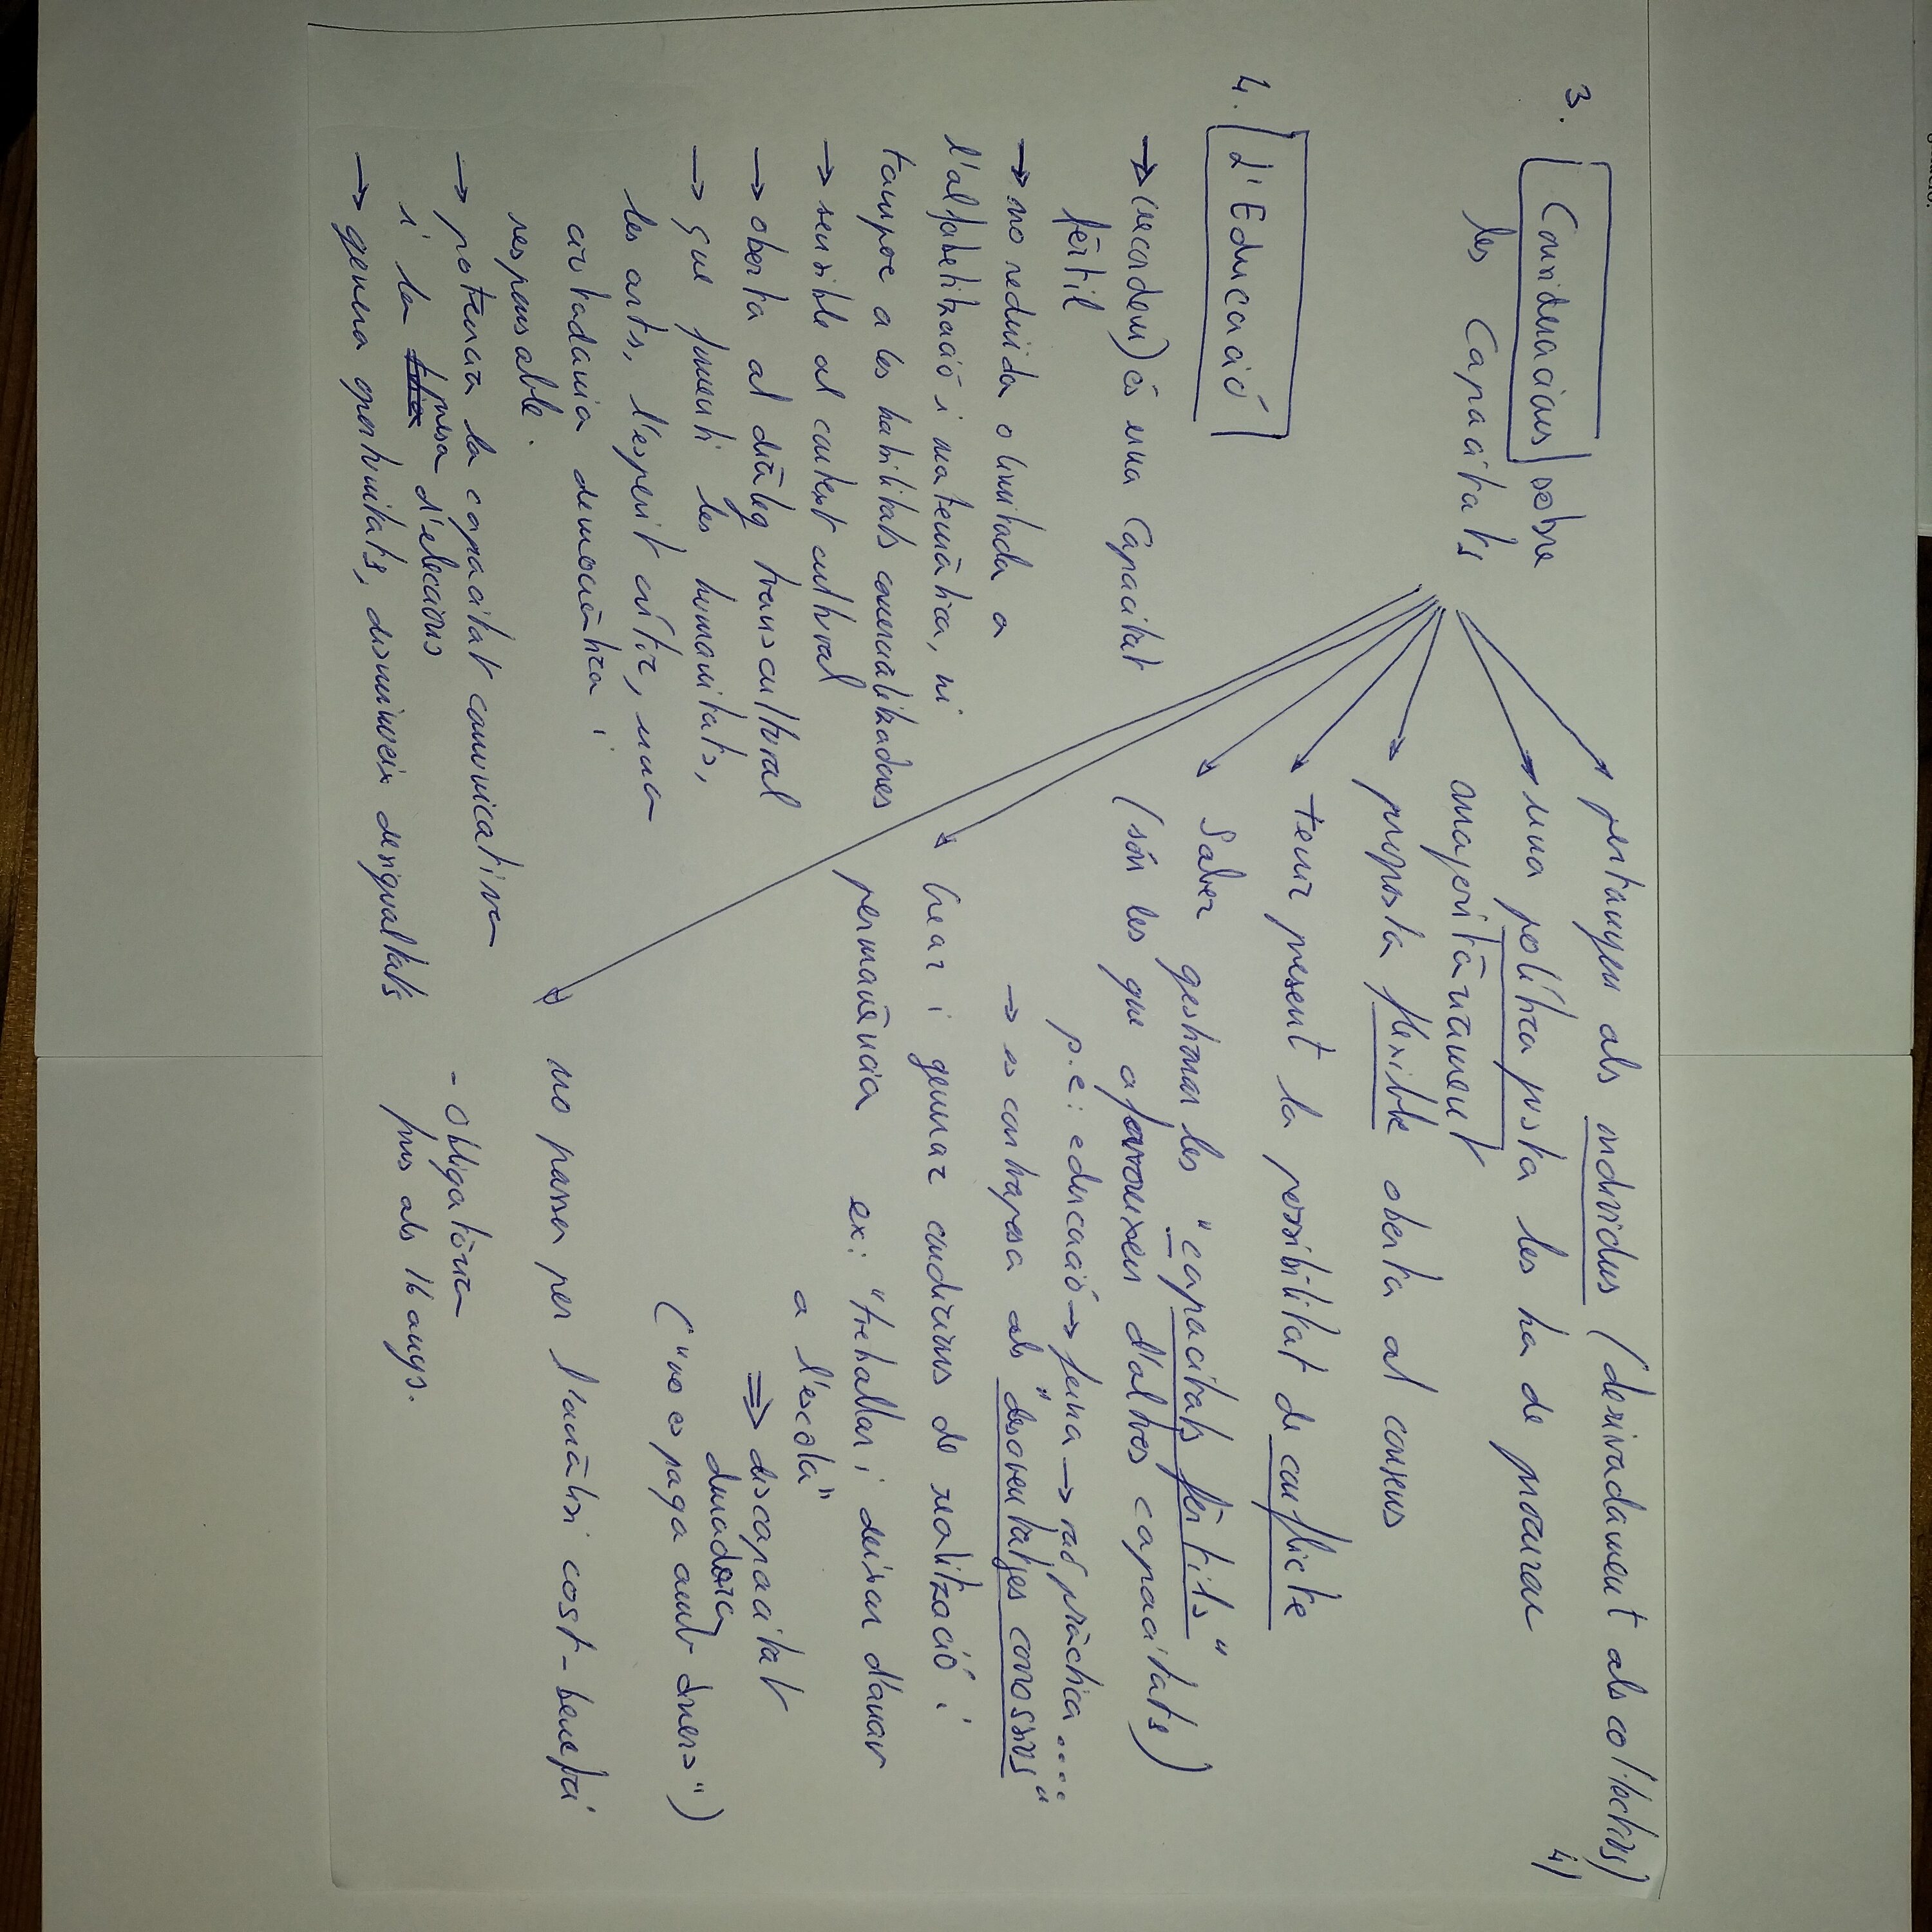 4)
3. Consideracions sobre
les Capacitats
→ pertanyen als individus (derivadament als col·lectius)
→ una política justa les ha de procurar
majoritàriament
→ proposta flexible oberta al consens
→ tenir present la possibilitat de conflicte
→ Saber gestionar les "capacitats fèrtils"
(són les que afavoreixen d'altres capacitats)
p.e: educació → feina → raó pràctica....
→ es contraposa als "desavantatges corrosius"
→ Crear i generar condicions de realització i
permanència ex: "treballar i deixar d'anar
a l'escola"
⇒ discapacitat
duradora
("no es paga amb diners")
→ no passen per l'anàlisi cost-benefici
4. L'Educació
→ (recordem) és una Capacitat
fèrtil
→ no reduïda o limitada a
l'alfabetització i matemàtica, ni
tampoc a les habilitats comercialitzadores
→ sensible al context cultural
→ oberta al diàleg transcultural
→ que fomenti les humanitats,
les arts, l'esperit crític, una
ciutadania democràtica i
responsable.
→ potencia la capacitat comunicativa
i la presa d'eleccions
→ genera oportunitats, disminueix desigualtats
- Obligatòria
fins als 16 anys.